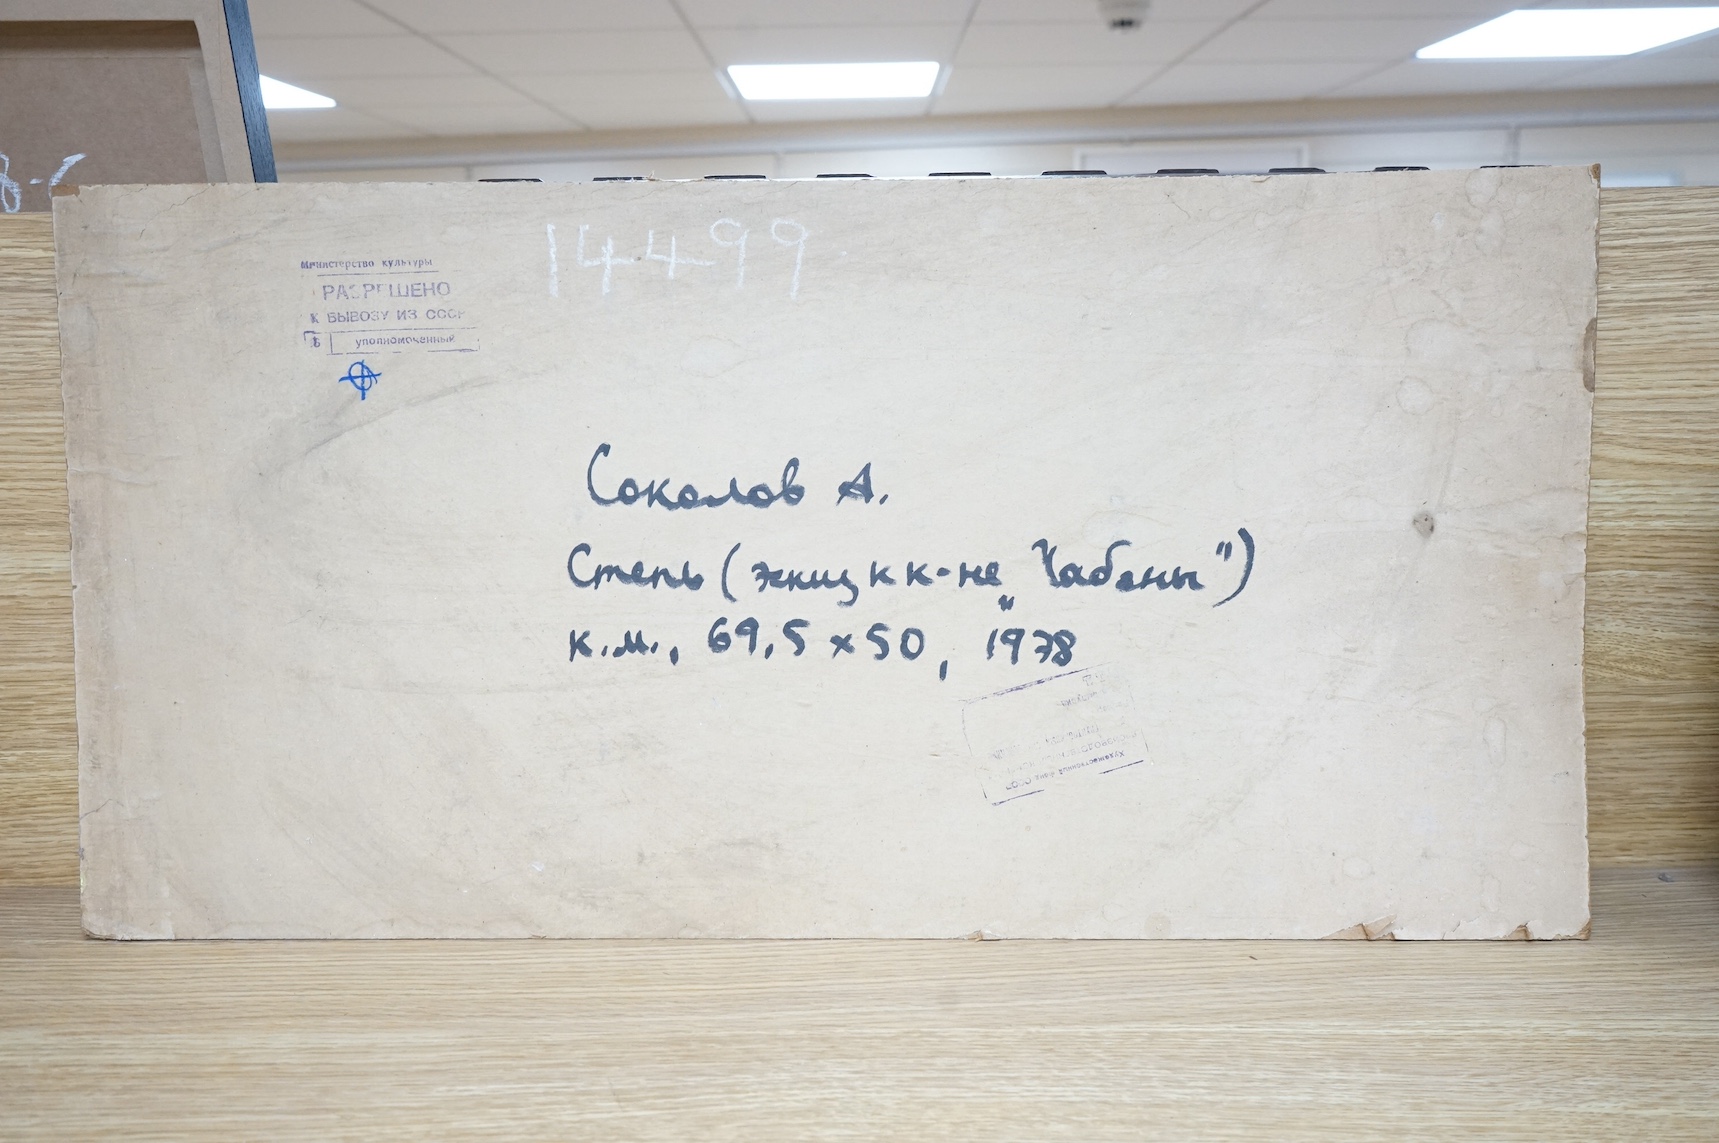 8-6
14499
Министерство культуры
РАЗРЕШЕНО
К ВЫВОЗУ ИЗ СССР
уполномоченный
Соколов А.
Степь (эскиз к к-не „Чабаны")
к.м., 69,5 x 50, 1978
Художественный фонд СССР